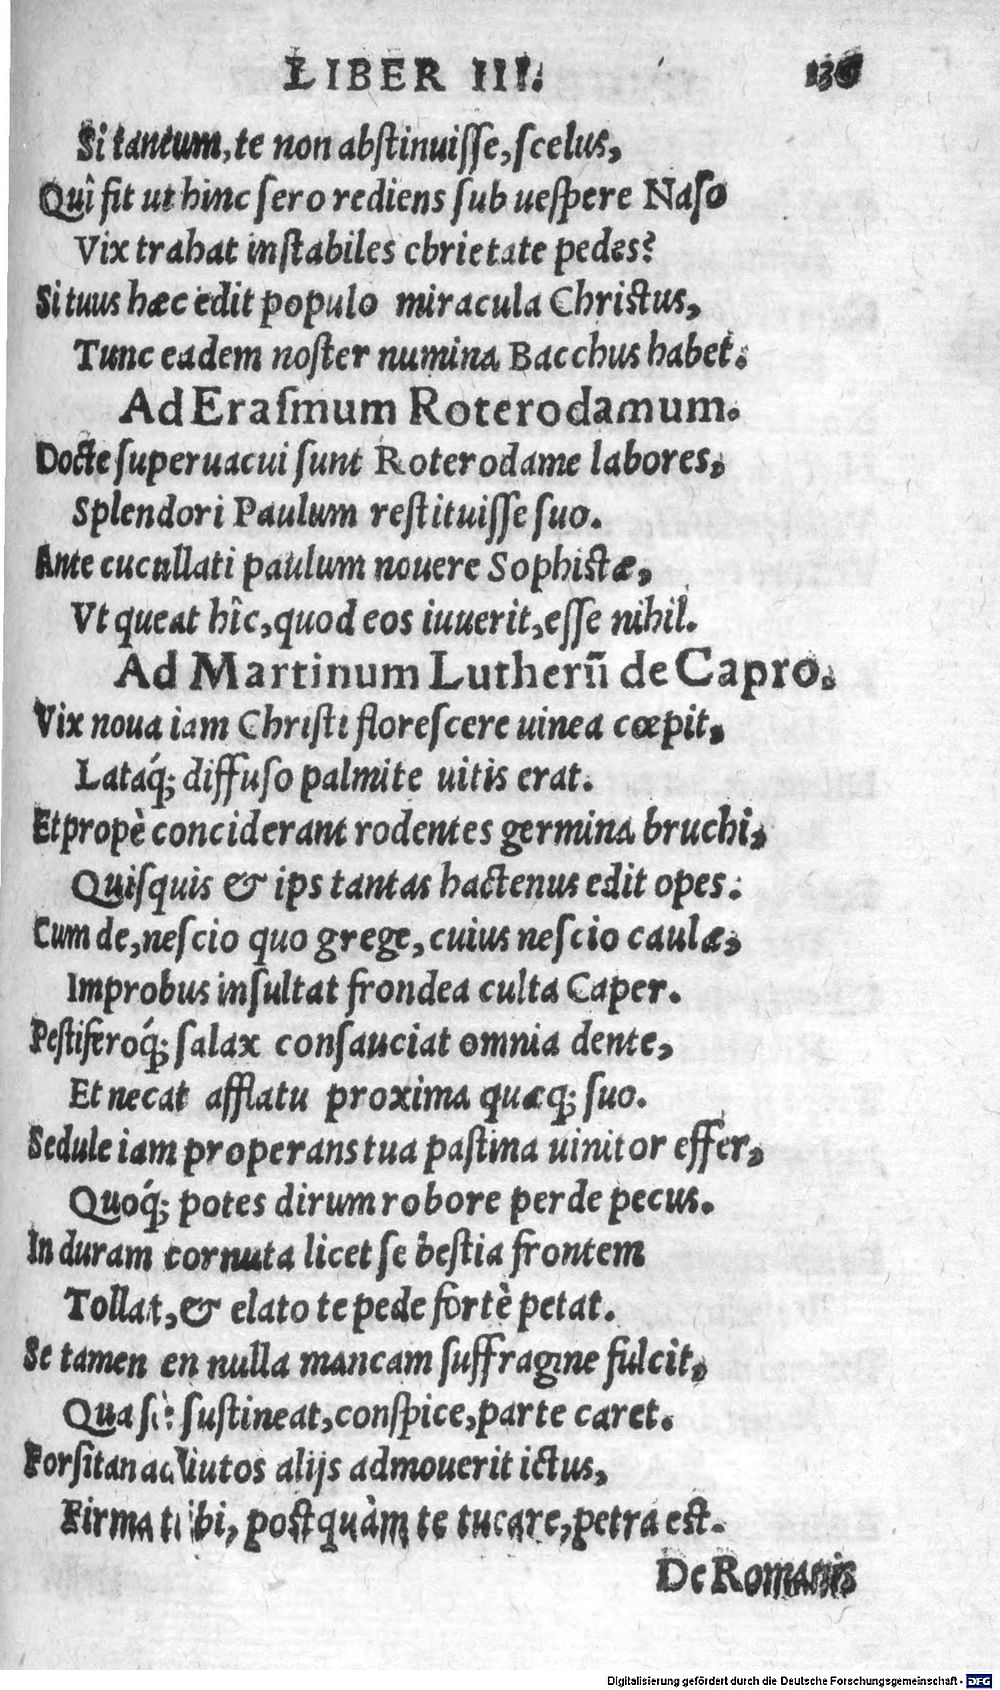 LIBER III. 136
Si tantum, te non abſtinuiſſe, ſcelus,
Quî fit ut hinc ſero rediens ſub ueſpere Naſo
Vix trahat inſtabiles ebrietate pedes?
Si tuus hæc edit populo miracula Chriſtus,
Tunc eadem noſter numina Bacchus habet.
Ad Eraſmum Roterodamum.
Docte ſuperuacui ſunt Roterodame labores,
Splendori Paulum reſtituiſſe ſuo.
Ante cucullati paulum nouere Sophiſtæ,
Vt queat hîc, quod eos iuuerit, eſſe nihil.
Ad Martinum Lutherū de Capro.
Vix noua iam Chriſti floreſcere uinea cœpit,
Lataq́; diffuſo palmite uitis erat.
Et propè conciderant rodentes germina bruchi,
Quiſquis & ips tantas hactenus edit opes.
Cum de, neſcio quo grege, cuius neſcio caulæ,
Improbus inſultat frondea culta Caper.
Peſtiferoq́; ſalax conſauciat omnia dente,
Et necat afflatu proxima quæq; ſuo.
Sedule iam properans tua paſtina uinitor effer,
Quoq́; potes dirum robore perde pecus.
In duram cornuta licet ſe beſtia frontem
Tollat, & elato te pede fortè petat.
Se tamen en nulla mancam ſuffragine fulcit,
Qua ſe ſuſtineat, conſpice, parte caret.
Forſitan adiutos alijs admouerit ictus,
Firma tibi, poſtquàm te tucare, petra eſt.
De Romanis
Digitalisierung gefördert durch die Deutsche Forschungsgemeinschaft - DFG